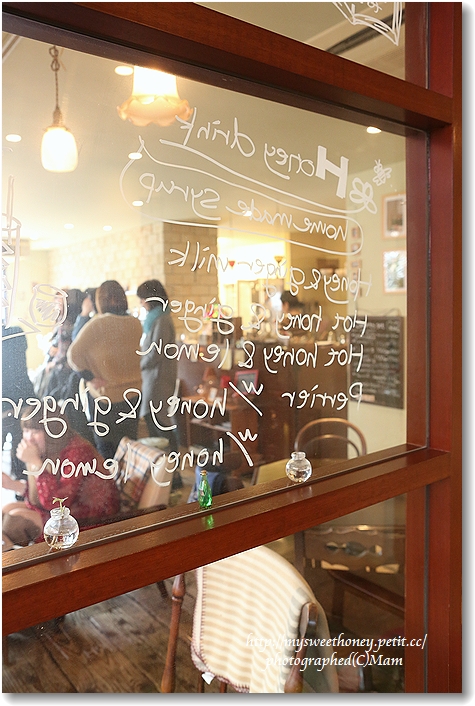 Honey drink
(homemade syrup)
Honey&ginger milk
Hot honey & ginger
Hot honey & lemon
Perrier
w/honey&ginger
w/honey lemon
http://mysweethoney.petit.cc/
photographed(C)Mam